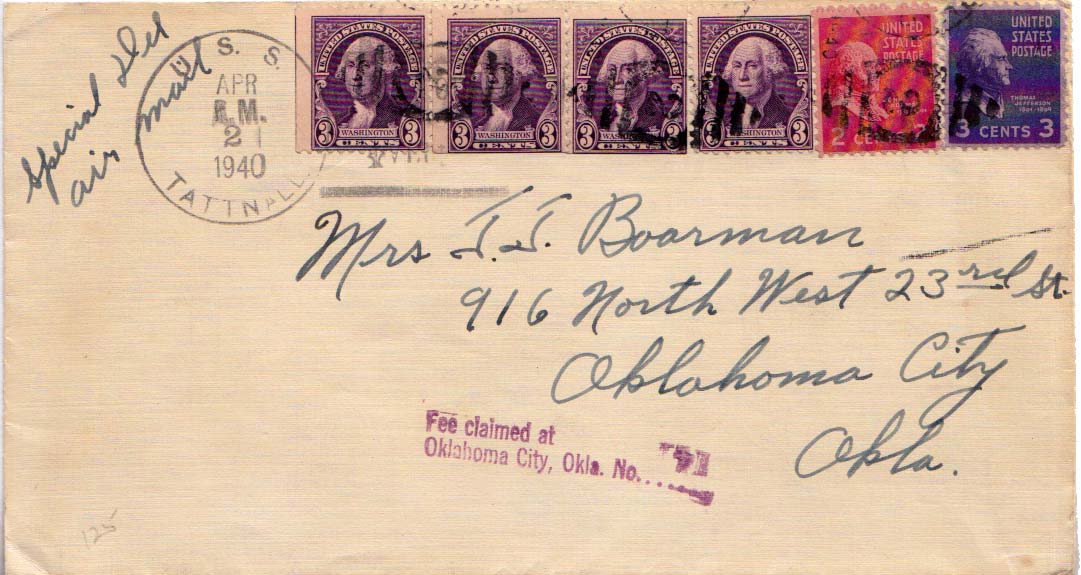 Special Del
air mail
U. S. S.
APR
A.M.
21
1940
TATTNALL
UNITED STATES POSTAGE
3 WASHINGTON 3
CENTS
UNITED STATES POSTAGE
3 WASHINGTON 3
CENTS
UNITED STATES POSTAGE
3 WASHINGTON 3
CENTS
UNITED STATES POSTAGE
3 WASHINGTON 3
CENTS
UNITED
STATES
POSTAGE
2 CENTS 2
UNITED
STATES
POSTAGE
THOMAS
JEFFERSON
1801-1809
3 CENTS 3
Mrs J. J. Boarman
916 North West 23rd St.
Oklahoma City
Okla.
Fee claimed at
Oklahoma City, Okla. No.
125